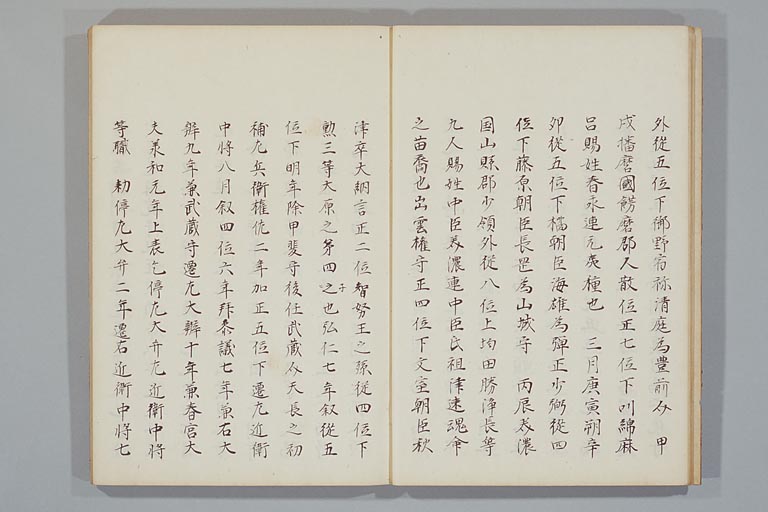 外從五位下御野宿祢清庭為豊前介　甲
戌播磨國餝磨郡人散位正七位下叫綿麻
呂賜姓春永連元夷種也　三月庚寅朔辛
夘從五位下橘朝臣海雄為彈正少弼從四
位下藤原朝臣長罡為山城守　丙辰美濃
国山縣郡少領外從八位上均田勝浄長等
九人賜姓中臣美濃連中臣氏祖津速魂命
之苗裔也出雲權守正四位下文室朝臣秋
津卒大納言正二位智努王之孫從四位下
勲三等大原之第四之子也弘仁七年叙從五
位下明年除甲斐守後任武蔵介天長之初
補左兵衛權佐二年加正五位下遷左近衛
中将八月叙四位六年拜参議七年兼右大
辨九年兼武蔵守遷左大辨十年兼春宮大
夫承和元年上表乞停左大弁左近衛中将
等職　勅停左大弁二年遷右近衛中将七